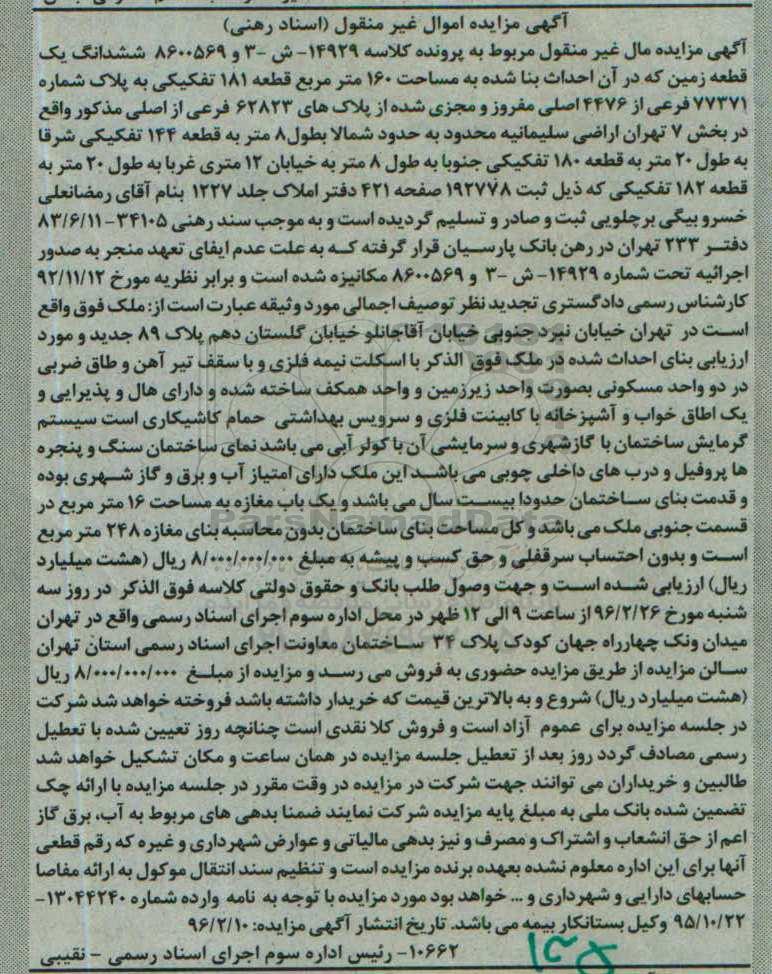 آگهی مزایده اموال غیر منقول (اسناد رهنی)
آگهی مزایده مال غیر منقول مربوط به پرونده کلاسه ۱۴۹۲۹- ش -۳ و ۸۶۰۰۵۶۹ ششدانگ یک
قطعه زمین که در آن احداث بنا شده به مساحت ۱۶۰ متر مربع قطعه ۱۸۱ تفکیکی به پلاک شماره
۷۷۳۷۱ فرعی از ۴۴۷۶ اصلی مفروز و مجزی شده از پلاک های ۶۲۸۲۳ فرعی از اصلی مذکور واقع
در بخش ۷ تهران اراضی سلیمانیه محدود به حدود شمالا بطول۸ متر به قطعه ۱۴۴ تفکیکی شرقا
به طول ۲۰ متر به قطعه ۱۸۰ تفکیکی جنوبا به طول ۸ متر به خیابان ۱۲ متری غربا به طول ۲۰ متر به
قطعه ۱۸۲ تفکیکی که ذیل ثبت ۱۹۲۷۷۸ صفحه ۴۲۱ دفتر املاک جلد ۱۲۲۷ بنام آقای رمضانعلی
خسرو بیگی برچلویی ثبت و صادر و تسلیم گردیده است و به موجب سند رهنی ۳۴۱۰۵-۸۳/۶/۱۱
دفتر ۲۳۳ تهران در رهن بانک پارسیان قرار گرفته که به علت عدم ایفای تعهد منجر به صدور
اجرائیه تحت شماره ۱۴۹۲۹- ش -۳ و ۸۶۰۰۵۶۹ مکانیزه شده است و برابر نظریه مورخ ۹۲/۱۱/۱۲
کارشناس رسمی دادگستری تجدید نظر توصیف اجمالی مورد وثیقه عبارت است از: ملک فوق واقع
است در تهران خیابان نبرد جنوبی خیابان آقاجانلو خیابان گلستان دهم پلاک ۸۹ جدید و مورد
ارزیابی بنای احداث شده در ملک فوق الذکر با اسکلت نیمه فلزی و با سقف تیر آهن و طاق ضربی
در دو واحد مسکونی بصورت واحد زیرزمین و واحد همکف ساخته شده و دارای هال و پذیرایی و
یک اطاق خواب و آشپزخانه با کابینت فلزی و سرویس بهداشتی حمام کاشیکاری است سیستم
گرمایش ساختمان با گازشهری و سرمایشی آن با کولر آبی می باشد نمای ساختمان سنگ و پنجره
ها پروفیل و درب های داخلی چوبی می باشد این ملک دارای امتیاز آب و برق و گاز شهری بوده
و قدمت بنای ساختمان حدودا بیست سال می باشد و یک باب مغازه به مساحت ۱۶ متر مربع در
قسمت جنوبی ملک می باشد و کل مساحت بنای ساختمان بدون محاسبه بنای مغازه ۲۴۸ متر مربع
است و بدون احتساب سرقفلی و حق کسب و پیشه به مبلغ ۸/۰۰۰/۰۰۰/۰۰۰ ریال (هشت میلیارد
ریال) ارزیابی شده است و جهت وصول طلب بانک و حقوق دولتی کلاسه فوق الذکر در روز سه
شنبه مورخ ۹۶/۲/۲۶ از ساعت ۹ الی ۱۲ ظهر در محل اداره سوم اجرای اسناد رسمی واقع در تهران
میدان ونک چهارراه جهان کودک پلاک ۳۴ ساختمان معاونت اجرای اسناد رسمی استان تهران
سالن مزایده از طریق مزایده حضوری به فروش می رسد و مزایده از مبلغ ۸/۰۰۰/۰۰۰/۰۰۰ ریال
(هشت میلیارد ریال) شروع و به بالاترین قیمت که خریدار داشته باشد فروخته خواهد شد شرکت
در جلسه مزایده برای عموم آزاد است و فروش کلا نقدی است چنانچه روز تعیین شده با تعطیل
رسمی مصادف گردد روز بعد از تعطیل جلسه مزایده در همان ساعت و مکان تشکیل خواهد شد
طالبین و خریداران می توانند جهت شرکت در مزایده در وقت مقرر در جلسه مزایده با ارائه چک
تضمین شده بانک ملی به مبلغ پایه مزایده شرکت نمایند ضمنا بدهی های مربوط به آب، برق گاز
اعم از حق انشعاب و اشتراک و مصرف و نیز بدهی مالیاتی و عوارض شهرداری و غیره که رقم قطعی
آنها برای این اداره معلوم نشده بعهده برنده مزایده است و تنظیم سند انتقال موکول به ارائه مفاصا
حسابهای دارایی و شهرداری و ... خواهد بود مورد مزایده با توجه به نامه وارده شماره ۱۳۰۴۴۲۴۰-
۹۵/۱۰/۲۲ وکیل بستانکار بیمه می باشد. تاریخ انتشار آگهی مزایده: ۹۶/۲/۱۰
۱۰۶۶۲- رئیس اداره سوم اجرای اسناد رسمی - نقیبی
ParsNamadData